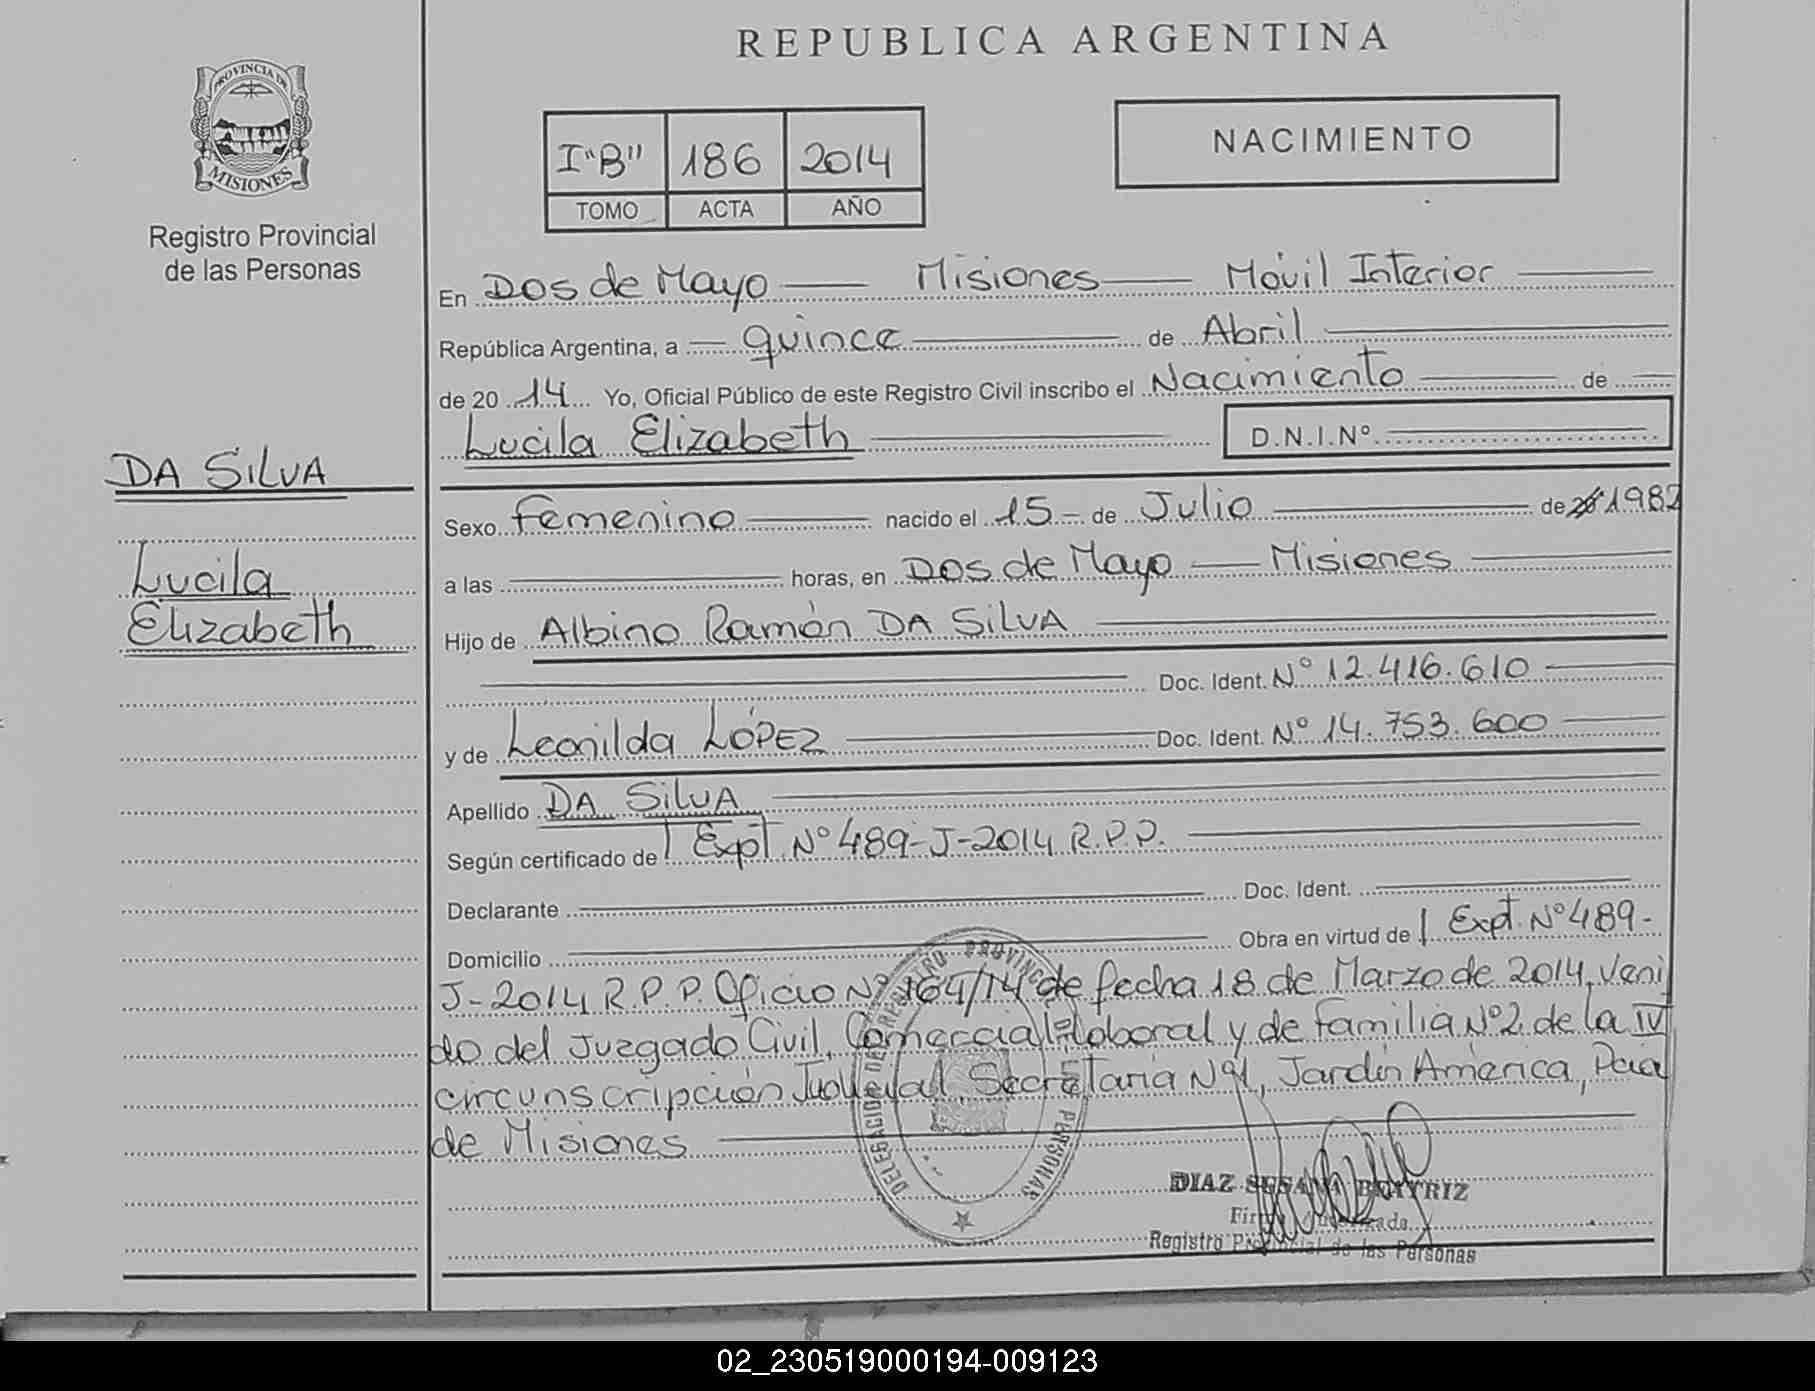 REPUBLICA ARGENTINA
PROVINCIA DE
MISIONES
Registro Provincial
de las Personas
I "B" 186 2014
TOMO ACTA AÑO
NACIMIENTO
En Dos de Mayo Misiones Móvil Interior
República Argentina, a quince de Abril
de 20 14 Yo, Oficial Público de este Registro Civil inscribo el Nacimiento de
Lucila Elizabeth D.N.I.Nº
DA SILVA
Lucila
Elizabeth
Sexo femenino nacido el 15 de Julio de 1982
a las horas, en Dos de Mayo Misiones
Hijo de Albino Ramón DA SILVA
Doc. Ident. Nº 12.416.610
y de Leonilda LÓPEZ Doc. Ident. Nº 14.753.600
Apellido DA SILVA
Según certificado de Expt. Nº 489-J-2014 R.P.P.
Declarante Doc. Ident.
Domicilio Obra en virtud de Expt. Nº 489-
J-2014 R.P.P. Oficio Nº 164/14 de fecha 18 de Marzo de 2014, veni
do del Juzgado Civil, Comercial, Laboral y de Familia Nº 2 de la IV
circunscripción Judicial, Secretaría Nº 1, Jardín América, Pcia
de Misiones
DELEGACION DEL REGISTRO PROVINCIAL PERSONAS
DIAZ SUSANA BEATRIZ
Firma Autorizada
Registro Provincial de las Personas
02_230519000194-009123